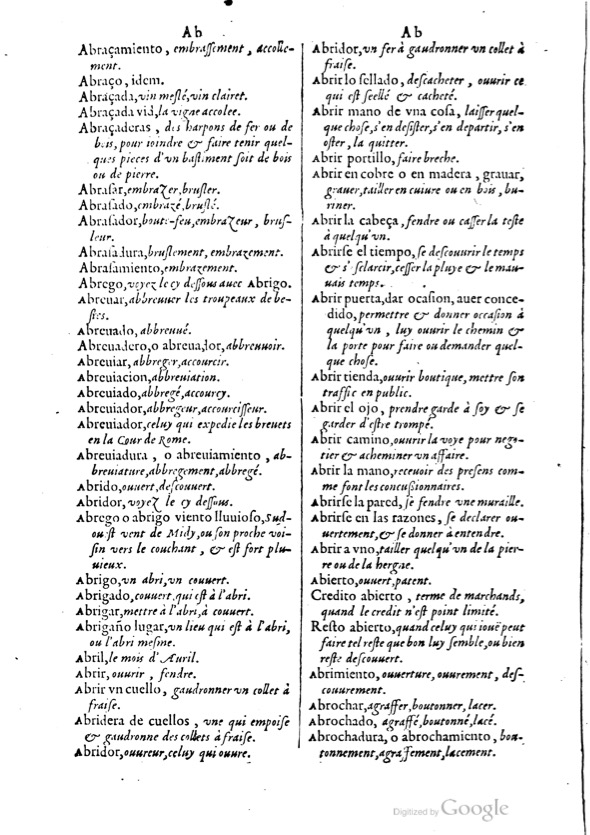 Ab
Abraçamiento, embraſſement, accolle-
ment.
Abraço, idem.
Abraçada, vin meſlé, vin clairet.
Abraçada vid, la vigne accolee.
Abraçaderas, des harpons de fer ou de
bois, pour ioindre & faire tenir quel-
ques pieces d'vn baſtiment ſoit de bois
ou de pierre.
Abraſar, embrazer, bruſler.
Abraſado, embrazé, bruſlé.
Abraſador, boute-feu, embrazeur, bruſ-
leur.
Abraſadura, bruſlement, embrazement.
Abraſamiento, embrazement.
Abrego, voyez le cy deſſous auec Abrigo.
Abreuar, abbreuuer les troupeaux de be-
ſtes.
Abreuado, abbreuué.
Abreuadero, o abreuador, abbreuuoir.
Abreuiar, abbreger, accourcir.
Abreuiacion, abbreuiation.
Abreuiado, abbregé, accourcy.
Abreuiador, abbregeur, accourciſſeur.
Abreuiador, celuy qui expedie les breuets
en la Cour de Rome.
Abreuiadura, o abreuiamiento, ab-
breuiature, abbregement, abbregé.
Abrido, ouuert, deſcouuert.
Abridor, voyez le cy deſſous.
Abrego o abrigo viento lluuioſo, Sud-
ouſt vent de Midy, ou ſon proche voi-
ſin vers le couchant, & eſt fort plu-
uieux.
Abrigo, vn abri, vn couuert.
Abrigado, couuert, qui eſt à l'abri.
Abrigar, mettre à l'abri, à couuert.
Abrigaño lugar, vn lieu qui eſt à l'abri,
ou l'abri meſme.
Abril, le mois d'Auril.
Abrir, ouurir, fendre.
Abrir vn cuello, gaudronner vn collet à
fraiſe.
Abridera de cuellos, vne qui empoiſe
& gaudronne des collets à fraiſe.
Abridor, ouureur, celuy qui ouure.
Ab
Abridor, vn fer à gaudronner vn collet à
fraiſe.
Abrir lo ſellado, deſcacheter, ouurir ce
qui eſt ſeellé & cacheté.
Abrir mano de vna coſa, laiſſer quel-
que choſe, s'en deſiſter, s'en departir, s'en
oſter, la quitter.
Abrir portillo, faire breche.
Abrir en cobre o en madera, grauar,
grauer, tailler en cuiure ou en bois, bu-
riner.
Abrir la cabeça, fendre ou caſſer la teſte
à quelqu'vn.
Abrirſe el tiempo, ſe deſcouurir le temps
& s'eſclarcir, ceſſer la pluye & le mau-
uais temps.
Abrir puerta, dar ocaſion, auer conce-
dido, permettre & donner occaſion à
quelqu'vn, luy ouurir le chemin &
la porte pour faire ou demander quel-
que choſe.
Abrir tienda, ouurir boutique, mettre ſon
traffic en public.
Abrir el ojo, prendre garde à ſoy & ſe
garder d'eſtre trompé.
Abrir camino, ouurir la voye pour nego-
tier & acheminer vn affaire.
Abrir la mano, receuoir des preſens com-
me font les concuſſionnaires.
Abrirſe la pared, ſe fendre vne muraille.
Abrirſe en las razones, ſe declarer ou-
uertement, & ſe donner à entendre.
Abrir a vno, tailler quelqu'vn de la pier-
re ou de la hergne.
Abierto, ouuert, patent.
Credito abierto, terme de marchands,
quand le credit n'eſt point limité.
Reſto abierto, quand celuy qui iouë peut
faire tel reſte que bon luy ſemble, ou bien
reſte deſcouuert.
Abrimiento, ouuerture, ouurement, deſ-
couurement.
Abrochar, agraffer, boutonner, lacer.
Abrochado, agraffé, boutonné, lacé.
Abrochadura, o abrochamiento, bou-
tonnement, agraffement, lacement.
Digitized by Google